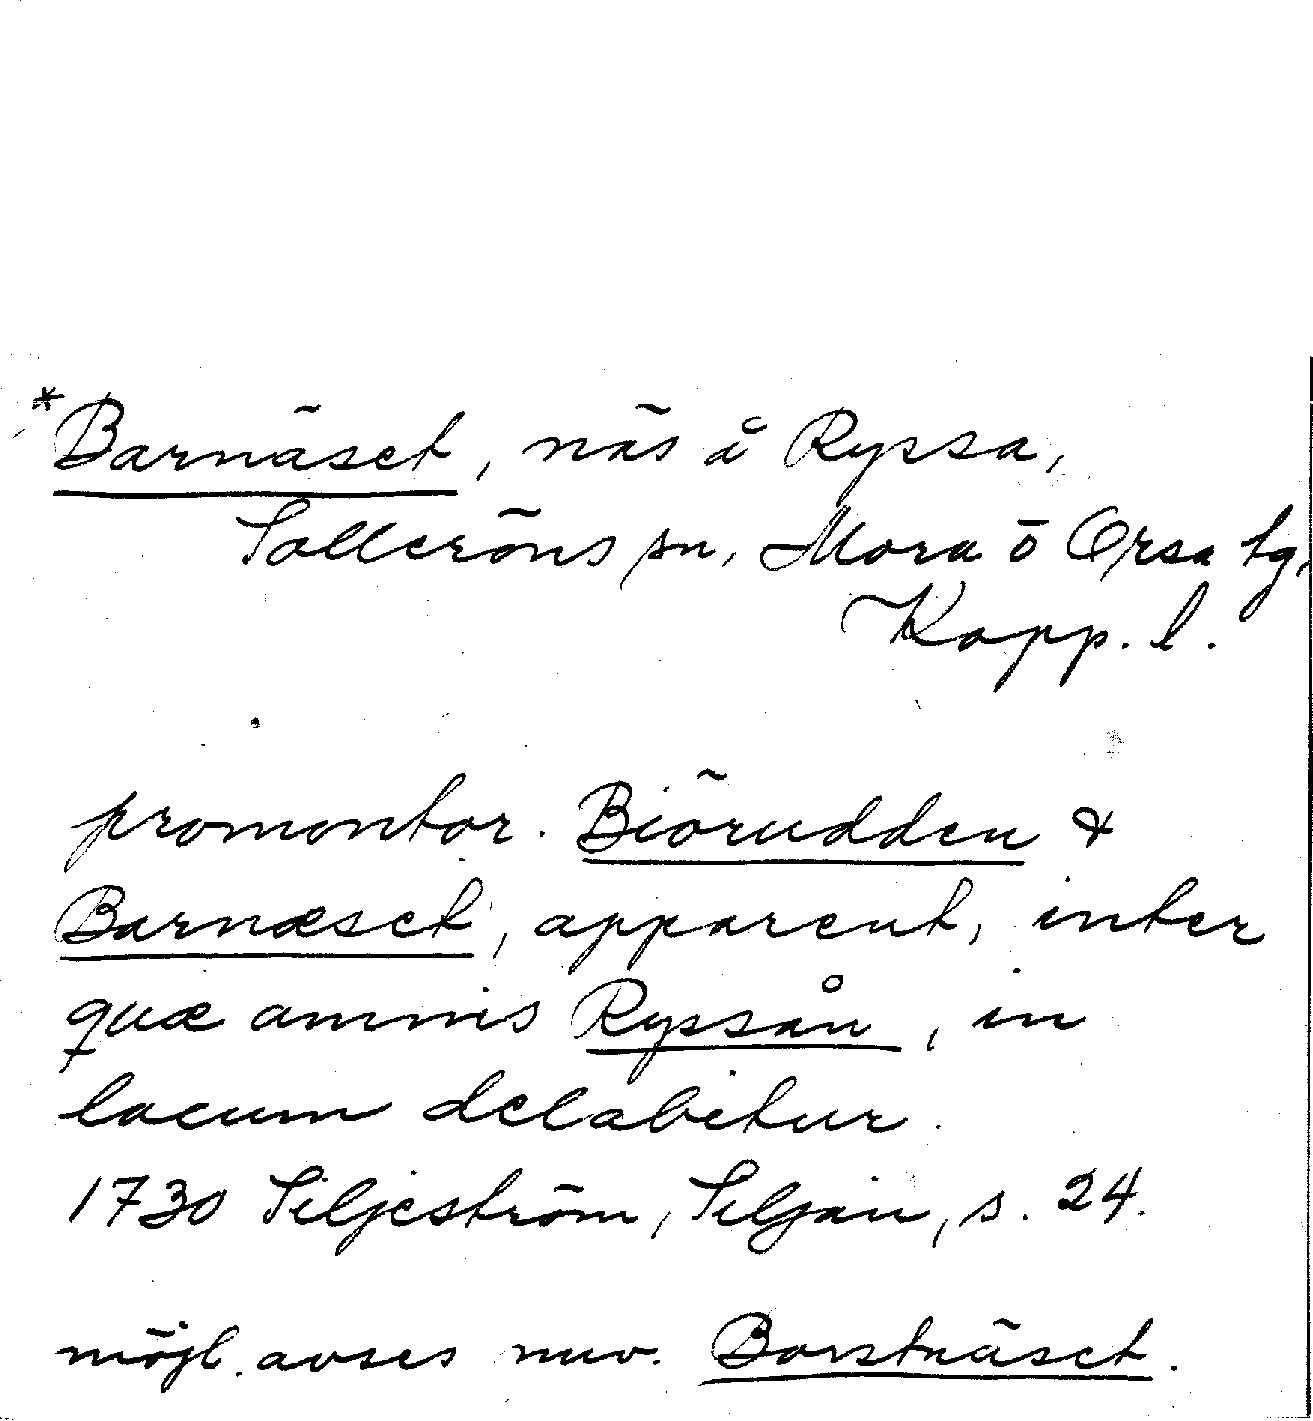 *Barnäset, näs å Ryssa,
Solleröns sn, Mora o Orsa tg,
Kopp. l.
promontor. Biörudden &
Barnæset, apparent, inter
quæ amnis Ryssån, in
lacum delabitur.
1730 Siljeström, Siljan, s. 24.
möjl. avses nuv. Borstnäset.